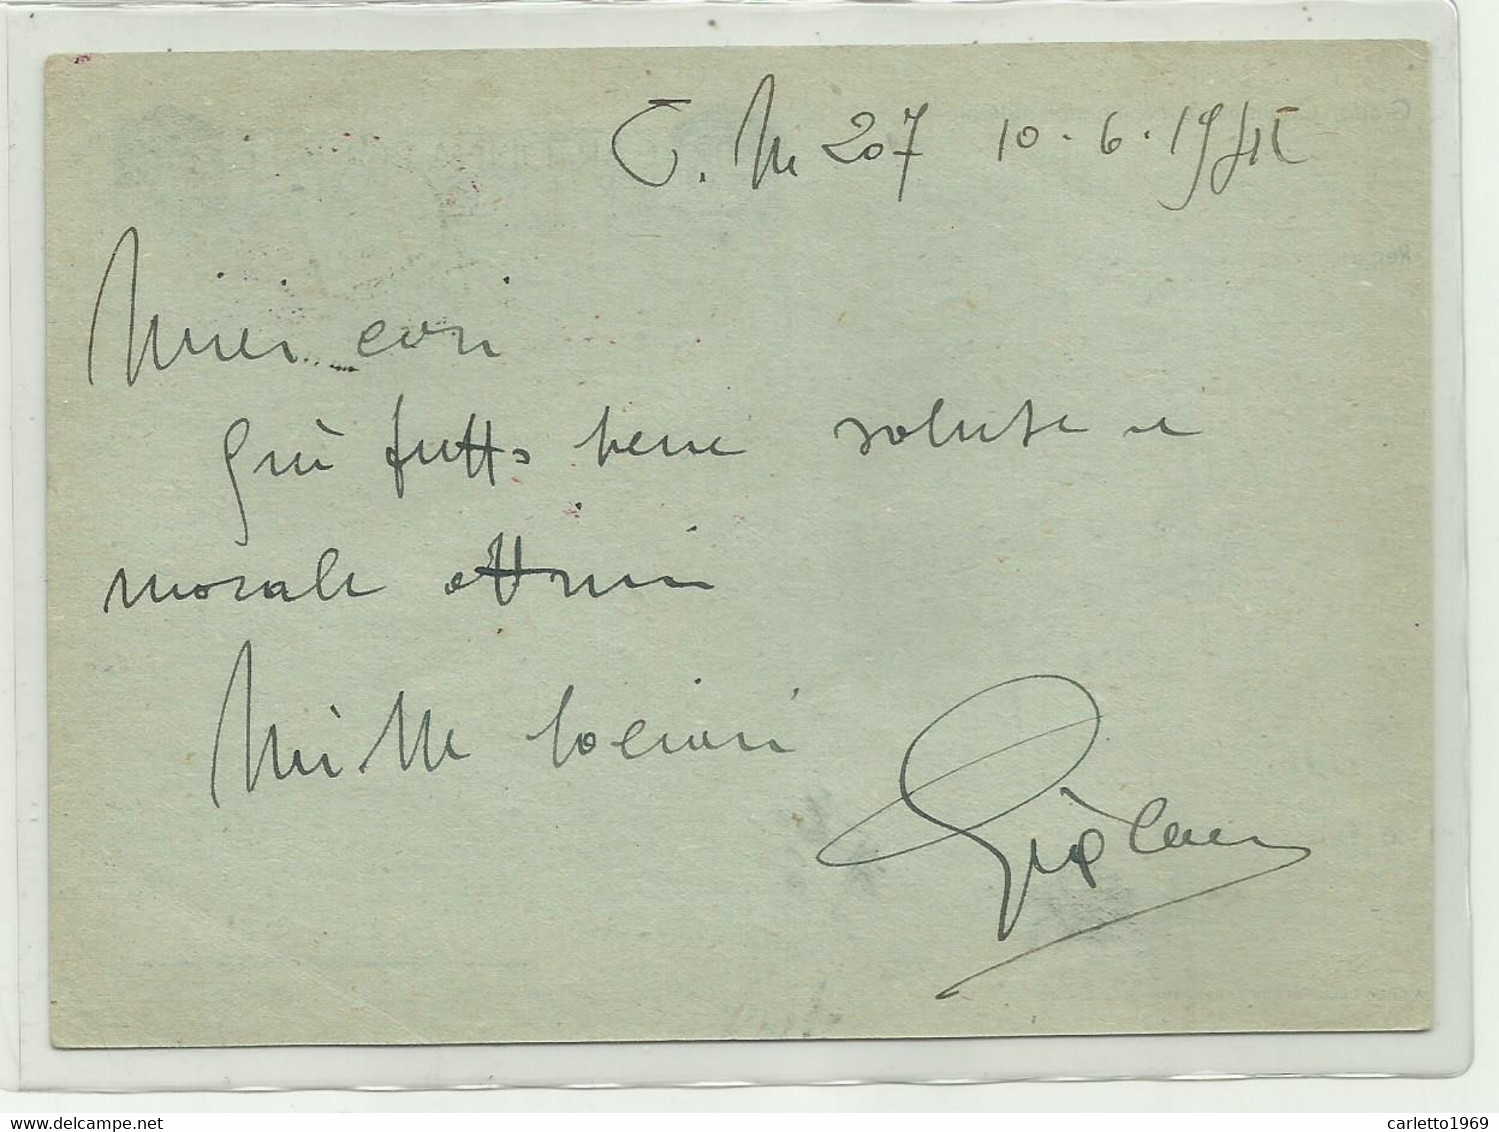 P. M 207 10-6-1941
Miei cari
qui tutto bene salute e
morale ottimi
Mille bacioni
carletto1969